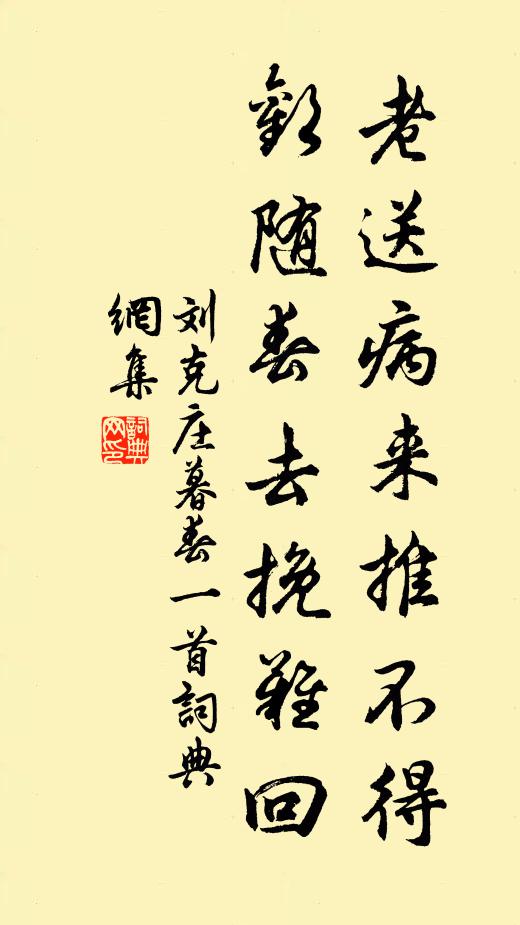 老送病来推不得
歡随春去挽難回
刘克庄暮春一首詞典
網集
詞典
网印